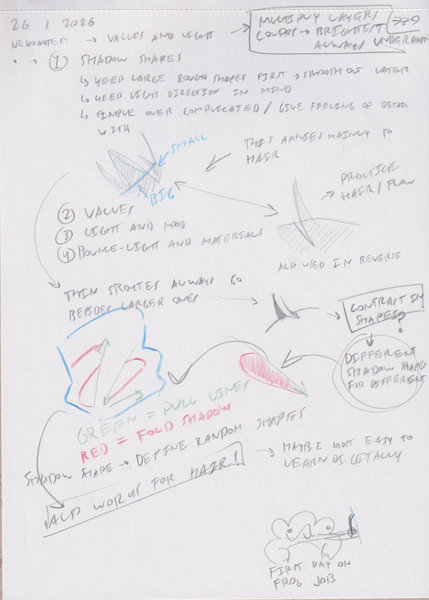 26 1 2026
→ VALUES AND LIGHT
MULTIPLY LAYERS
COVERS → BRIGHTEST
ALWAYS UNDERNEATH
???
① SHADOW SHAPES
↳ KEEP LARGE ROUGH SHAPES FIRST → SMOOTH OUT LATER
↳ KEEP LIGHT DIRECTION IN MIND
↳ SIMPLE OVER COMPLICATED / GIVE FEELING OF DETAIL
WITH
SMALL
BIG
THIS APPLIES MAINLY TO
HAIR
PRACTICE
HAIR / FLOW
② VALUES
③ LIGHT AND MOOD
④ BOUNCE-LIGHT AND MATERIALS
ALSO USED IN REVERSE
THIN STROKES ALWAYS GO
BESIDES LARGER ONES
CONTRAST IN
SHAPES?
DIFFERENT
SHADOW SHAPES
FOR DIFFERENT
GREEN = PULL LINES
RED = FOLD SHADOW
SHADOW SHAPE → DEFINE RANDOM SHAPES
ALSO WORKS FOR HAIR!
→ MAYBE MOST EASY TO
LEARN DIGITALLY
FIRST DAY ON
FROG JOB